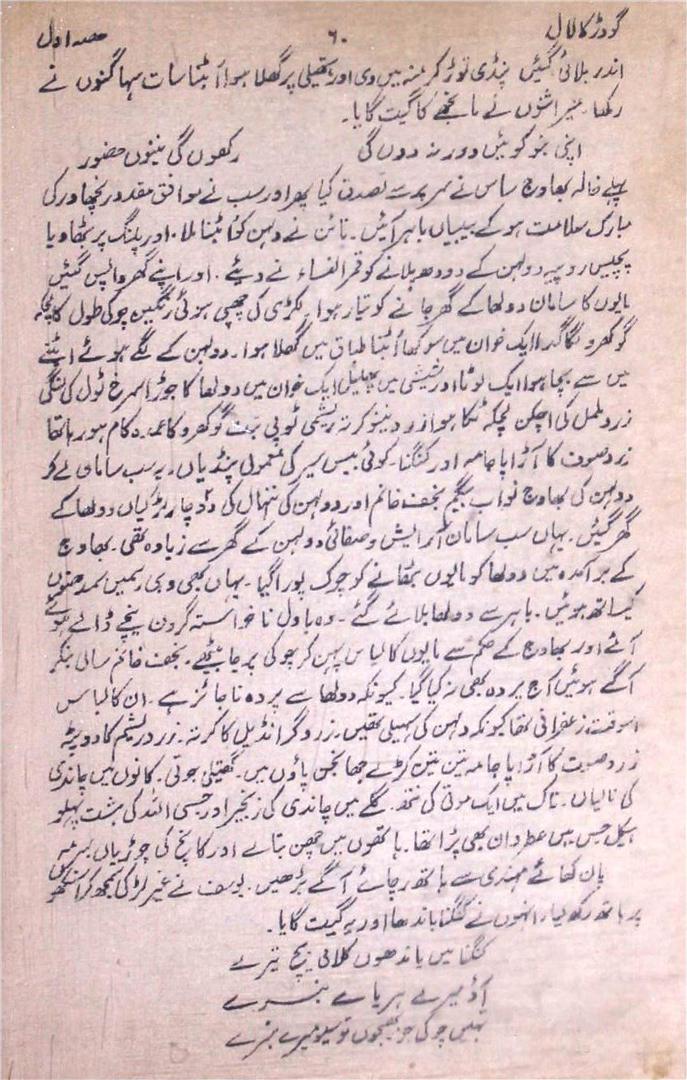 گودڑ کا لال ۶۰ حصہ اول
اندر بلائی گئیں پنڈی توڑ کر منہ میں دی اور ہتھیلی پر گھلا ہوا اُبٹنا سات سہاگنوں نے
رکھا، میراثنوں نے مانجھے کا گیت گایا۔
اپنی بنو کو میں دور نہ دوں گی رکھوں گی نینوں حضور
پہلے خالہ بھاوج ساس نے سر پر سے تصدق کیا پھر اور سب نے موافق مقدور نچھاور کی
مبارک سلامت ہو کے بیبیاں باہر آئیں۔ نائن نے دلہن کو اُبٹنا ملا۔ اور پلنگ پر بٹھا دیا
پچیس روپیہ دولہن کے دودھ پلانے کو قمر النساء نے دیئے۔ اور اپنے گھر واپس گئیں
مایوں کا سامان دولھا کے گھر جانے کو تیار ہوا۔ لکڑی کی چھپی ہوئی رنگین چوکی طول کا لچکہ
گوکھرو لگا گدا ایک خوان میں سوکھا اُبٹنا طباق میں گھلا ہوا۔ دولہن کے لگے ہوئے ابٹنے
میں سے بچا ہوا ایک لوٹا اور شیشی میں پھلیل ایک خوان میں دولھا کا جوڑا سرخ ٹول کی لنگی
زرد ململ کی اچکن لچکہ ٹکا ہوا زرد نینو کرتہ ریشمی ٹوپی بنت گوکھرو کا عمدہ کام ہو رہا تھا
زرد صوف کا آڑا پاجامہ اور کنگنا۔ کوئی بیس سیر کی معمولی پنڈیاں۔ یہ سب سامان لے کر
دولہن کی بھاوج نواب بیگم نجف خانم اور دولہن کی ننہال کی دو چار لڑکیاں دولھا کے
گھر گئیں۔ یہاں سب سامان آرایش و صفائی دولہن کے گھر سے زیادہ تھی۔ بھاوج
کے برآمدہ میں دولھا کو مایوں بٹھانے کو چوک پورا گیا۔ یہاں بھی وہی رسمیں سمدھنوں
کیساتھ ہوئیں۔ باہر سے دولھا بلائے گئے۔ وہ بادل ناخواستہ گردن نیچے ڈالے ہوئے
آئے اور بھاوج کے حکم سے مایوں کا لباس پہن کر چوکی پر جا بیٹھے۔ نجف خانم سالی بنکر
آگے ہوئیں آج پردہ بھی نہ کیا گیا۔ کیونکہ دولھا سے پردہ ناجائز ہے۔ ان کا لباس
اسوقت زعفرانی تھا کیونکہ دلہن کی سہیلی تھیں۔ زرد گرانڈیل کا کرتہ۔ زرد ریشم کا دوپٹہ
زرد صوف کا آڑا پاجامہ تین تین کڑے جھانجن پاؤں میں۔ گھتیلی جوتی۔ کانوں میں چاندی
کی تالیاں۔ ناک میں ایک موتی کی نتھ۔ گلے میں چاندی کی زنجیر اور حسبی اللہ کی ہشت پہلو
ہیکل جس میں عطردان بھی پڑا تھا۔ ہاتھوں میں چھن بتانے اور کانچ کی چوڑیاں
پان کھائے مہندی سے ہاتھ رچائے آگے بڑھیں۔ یوسف نے غیر لڑکی سمجھ کر آنکھوں
پر ہاتھ رکھ لیا، انہوں نے کنگنا باندھا اور یہ گیت گایا۔
کنگنا میں باندھوں کلائی بیچ تیرے
آؤ میرے ہریالے بنرے
تمہیں چوکی جو بھیجوں تو میرے بنرے